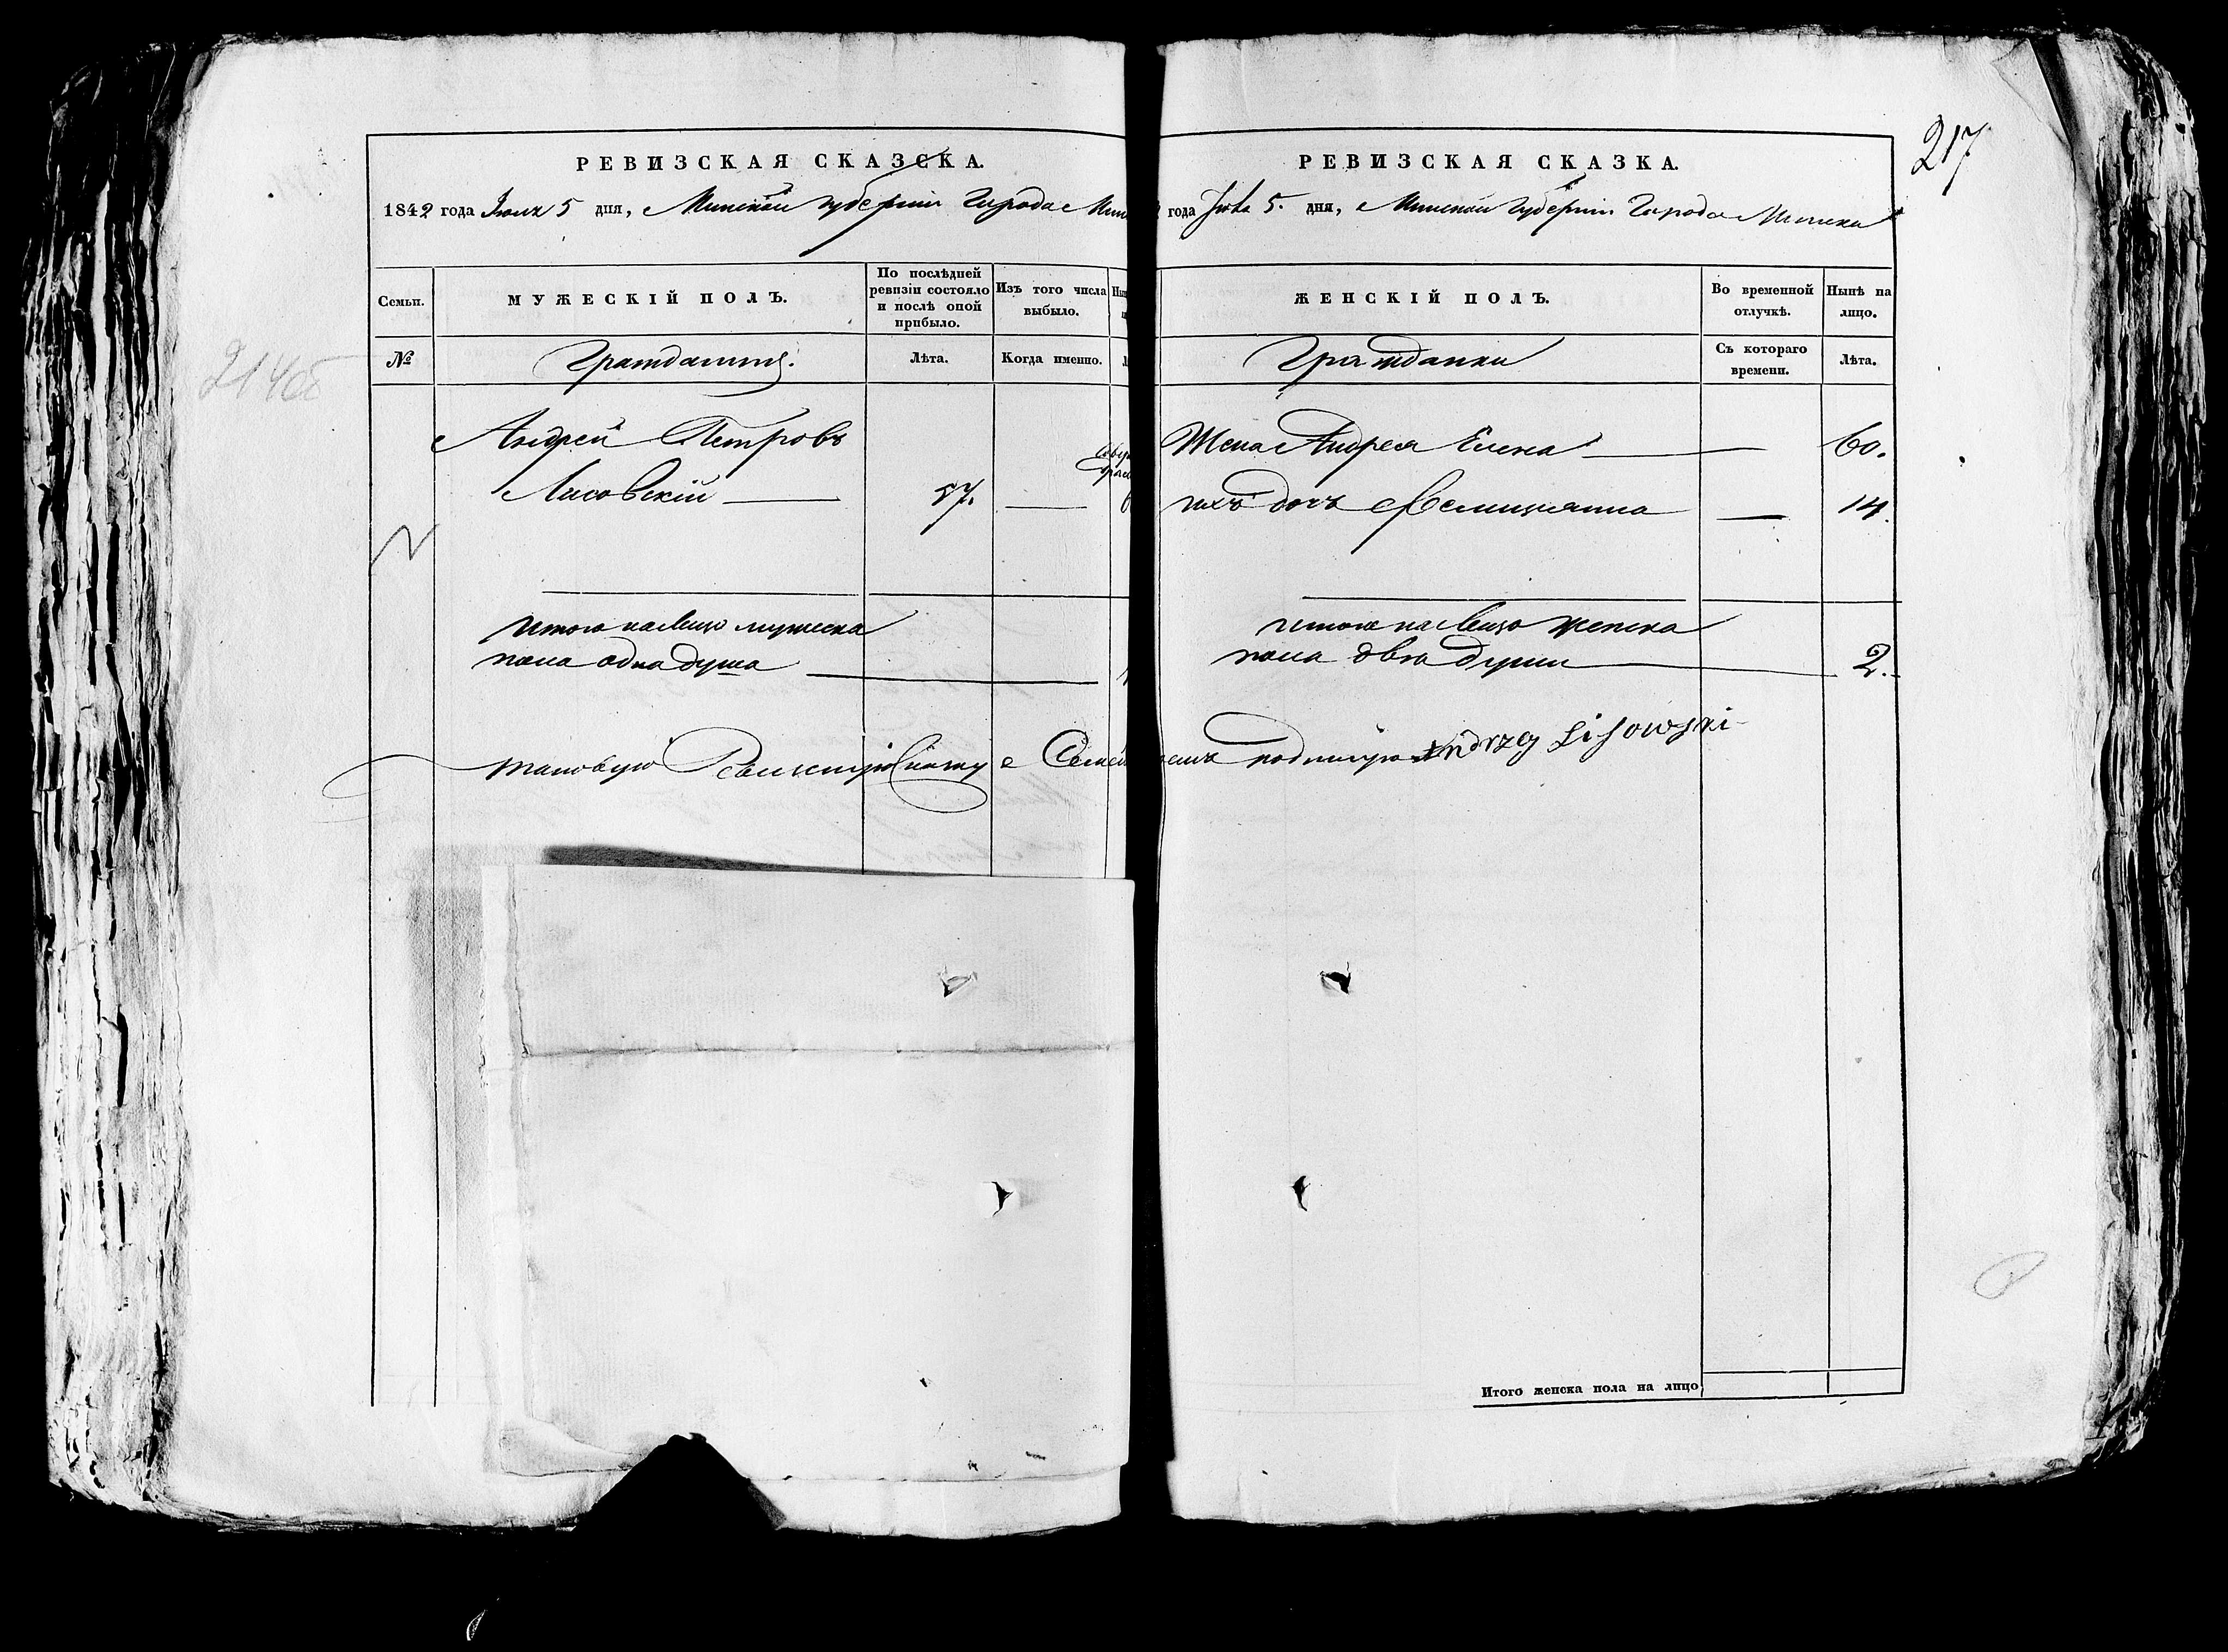 217
РЕВИЗСКАЯ СКАЗСКА.
1842 года Июля 5 дня, Минской губерніи Города Мин
Семьи.
МУЖЕСКІЙ ПОЛЪ.
По послѣдней ревизіи состояло и послѣ оной прибыло.
Изъ того числа выбыло.
№
Гражданинъ.
Лѣта.
Когда именно.
Андрей Петровъ
Лисовскій — 57. —
Итого на лицо мужеска
пола одна душа —
таковую Ревизскую Сказку
РЕВИЗСКАЯ СКАЗКА.
года Июля 5. дня, Минской Губерніи Города Минска
ЖЕНСКІЙ ПОЛЪ.
Во временной отлучкѣ.
Нынѣ на лицо.
Гражданки
Съ котораго времени.
Лѣта.
Жена Андрея Елена — 60.
ихъ дочь Фелициянна — 14.
Итого на лицо женска
пола двѣ души — 2.
подписую Andrzey Lisowski
Итого женска пола на лицо